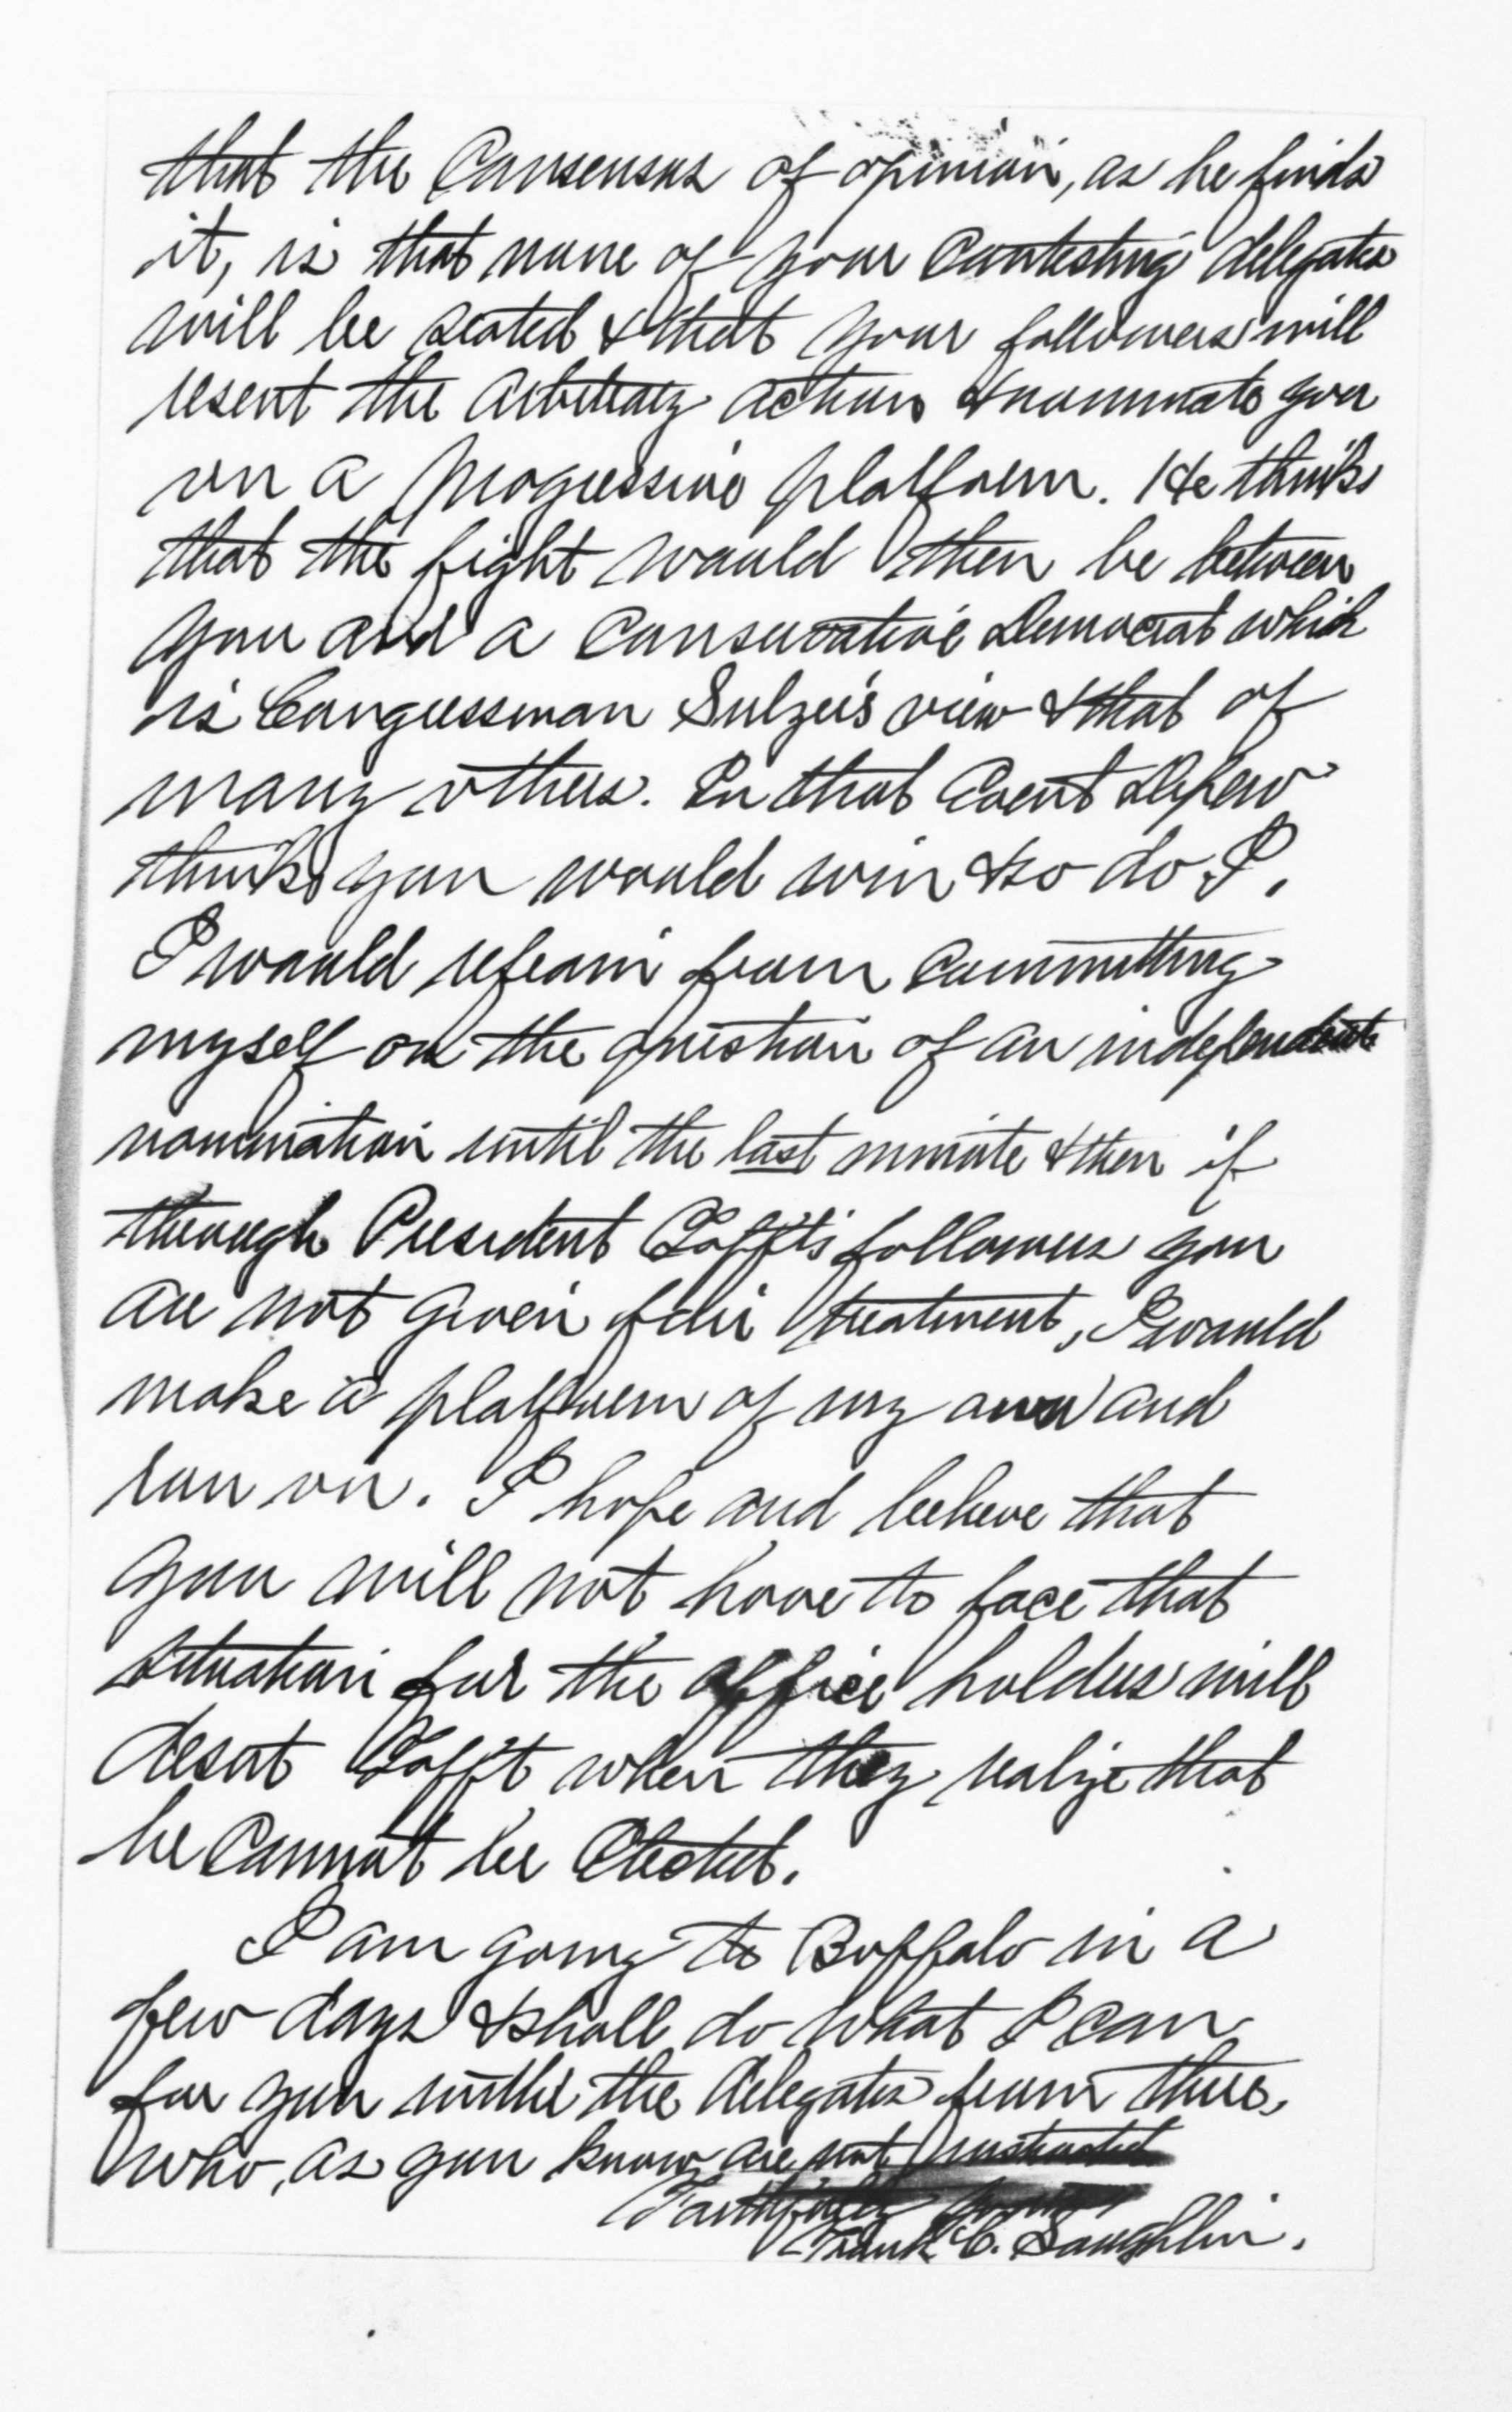 that the Consensus of opinion, as he finds
it, is that none of your Contesting delegates
will be seated & that your followers will
resent the Arbitrary action & nominate you
on a progressive platform. He thinks
that the fight would then be between
you and a Conservative Democrat which
is Congressman Sulzer's view & that of
many others. In that Event Depew
thinks you would win & so do I.
I would refrain from Committing
myself on the question of an independent
nomination until the last minute & then if
through President Taft's followers you
are not given fair treatment, I would
make a platform of my own and
run on. I hope and believe that
you will not have to face that
situation for the office holders will
desert Taft when they realize that
he Cannot be Elected.
I am going to Buffalo in a
few days & shall do what I can
for you with the delegates from there,
who, as you know are not instructed
Faithfully yours
Frank C. Laughlin.